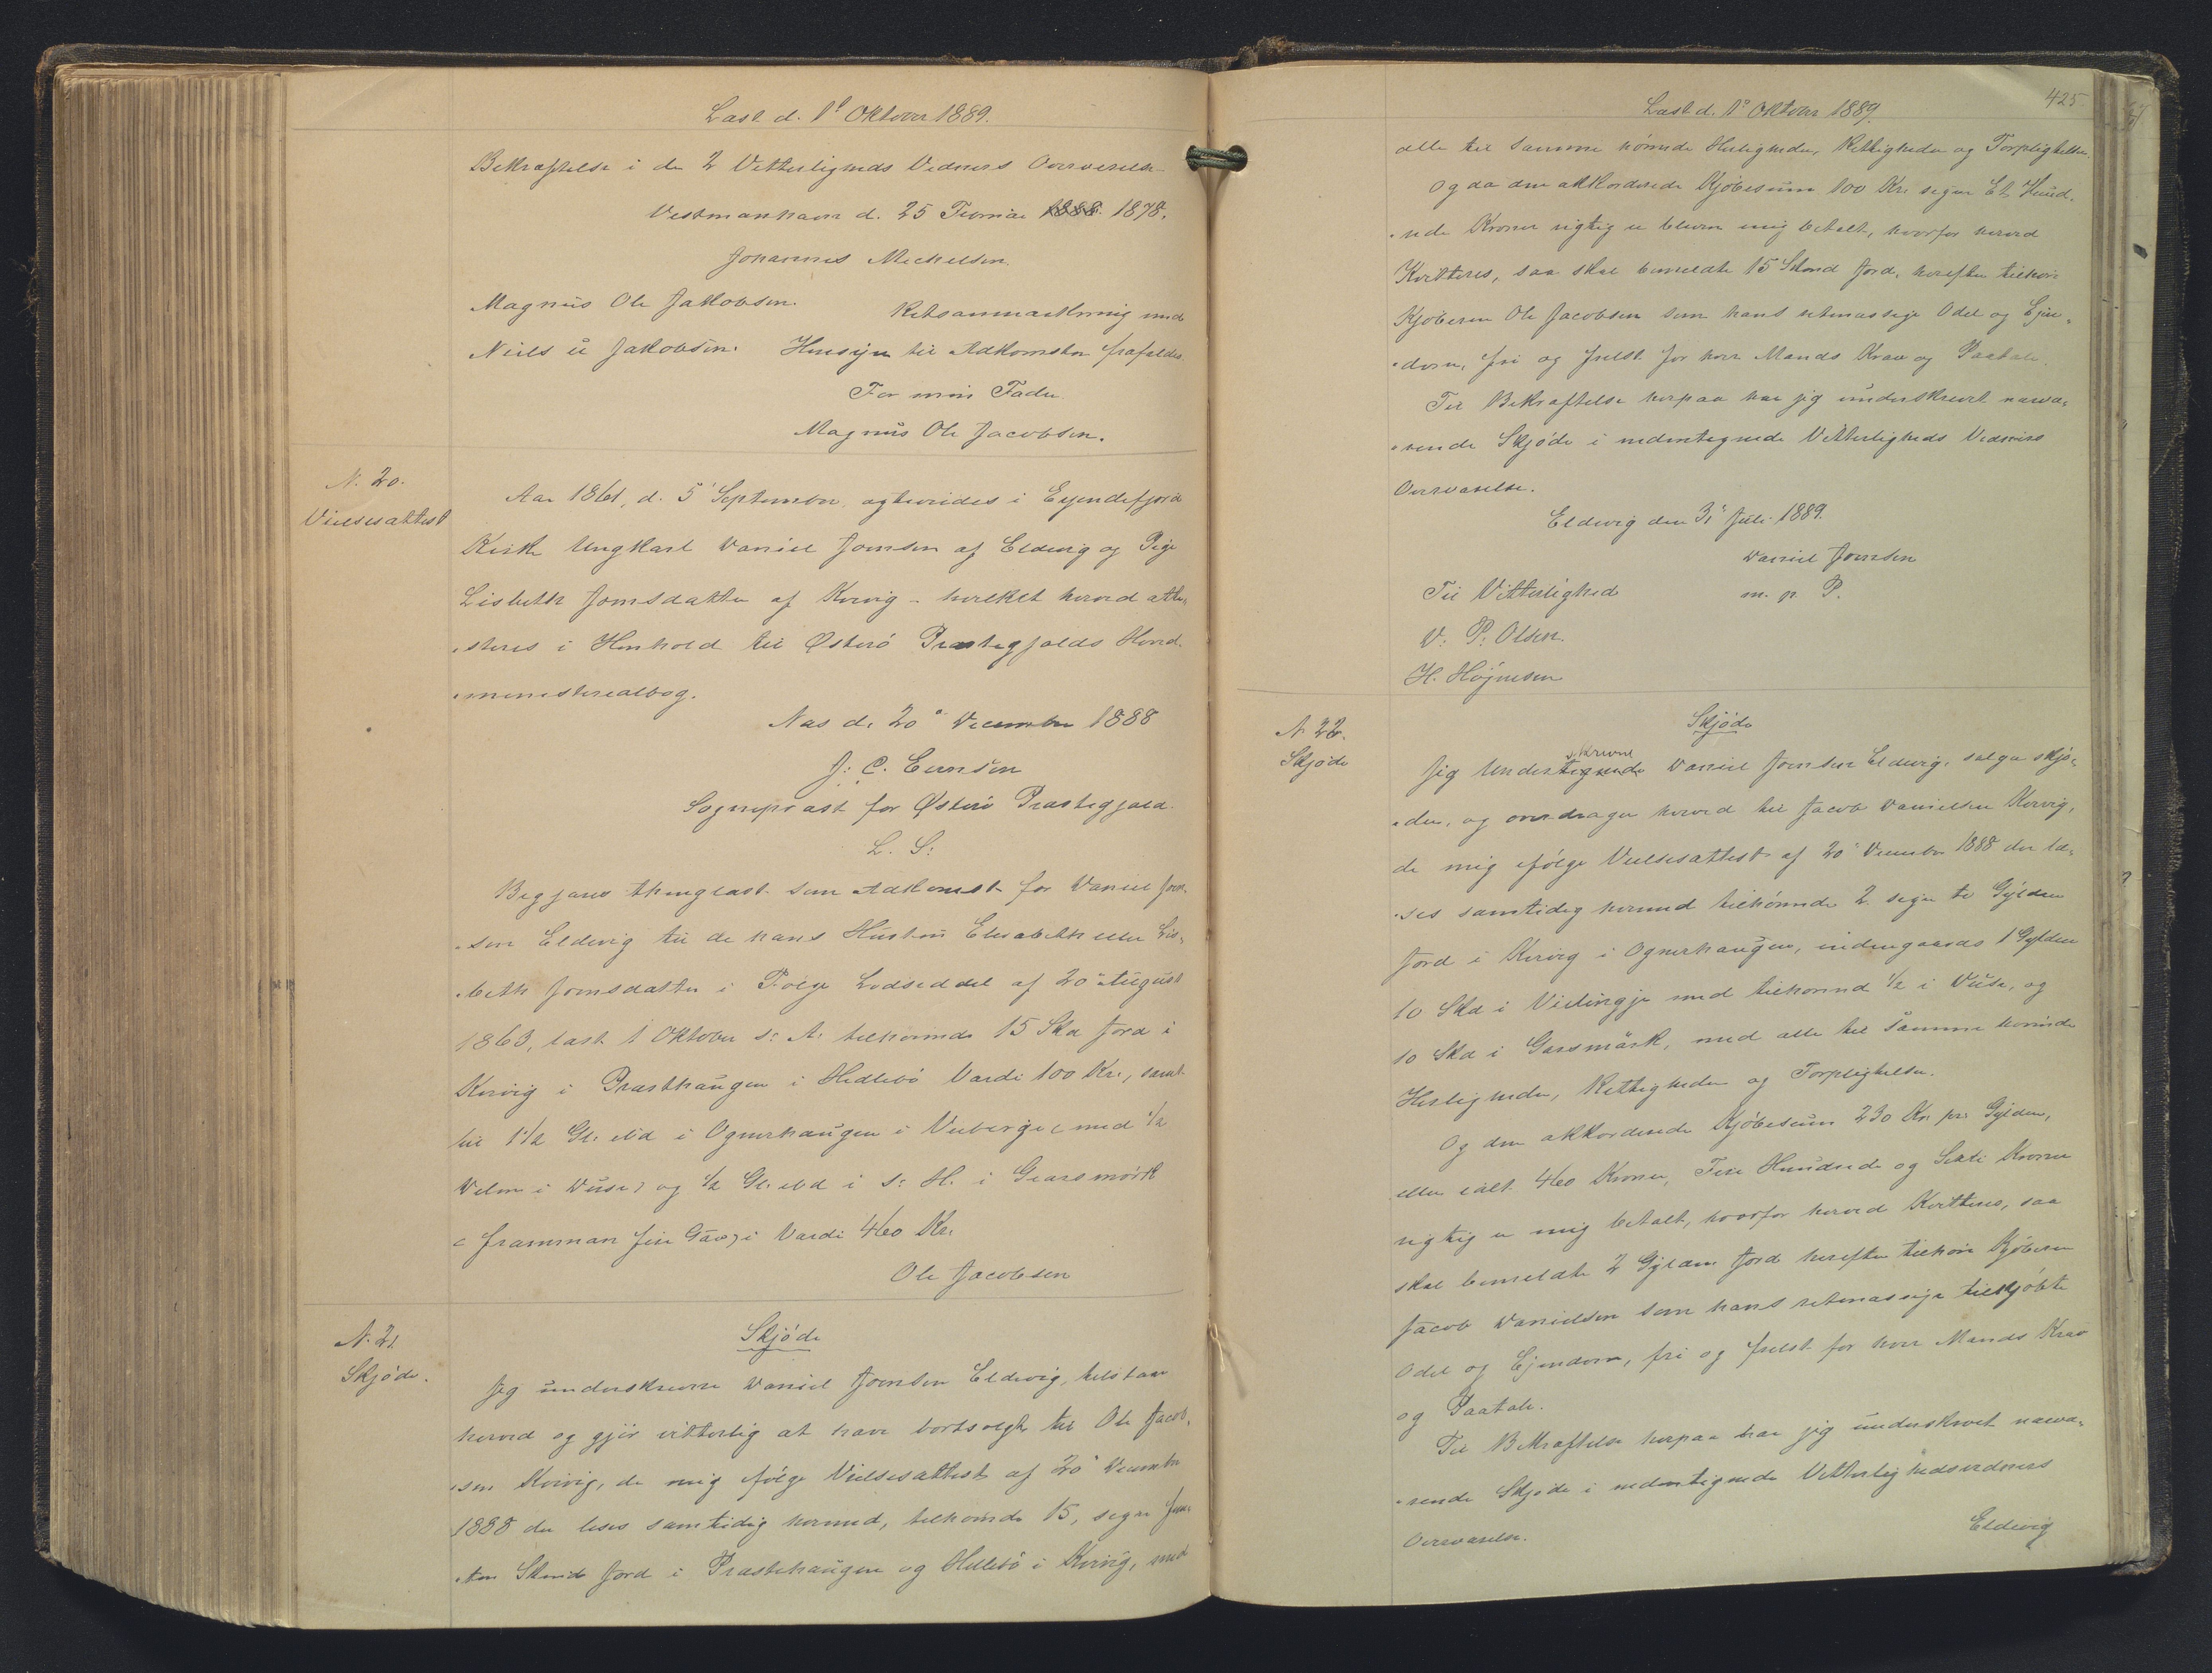 Læst d. 1ste Oktober 1889.
Bekræftelse i de 2 Vitterligheds Vidners Overværelse
Vestmanhavn d. 25 Februar 1888. 1878.
Johannes Michelsen.
Magnus Ole Jakobsen.
Retsanmærkning med
Niels u Jakobsen. Hensyn til Adkomsten frafaldes.
For min Fader
Magnus Ole Jacobsen.
N. 20.
Vielsesattest
Aar 1861, d. 5' September, ægteviedes i Ejendefjord
Kirke Ungkarl Daniel Joensen af Eldevig og Pige
Lisbeth Joensdatter af Kvivig - hvilket herved atte-
steres i Henhold til Østerø Præstegjælds Hoved-
ministerialbog.
Næs d. 20de December 1888
J. C. Evensen
Sognepræst for Østerø Præstegjæld.
L. S.
Begjæres thinglæst som Adkomst for Daniel Joen-
sen Eldevig til de hans Hustru Elisabeth eller Lis-
beth Joensdatter i Følge Lodseddel af 20 August
1863, læst 1 Oktober s: A: tilhørende 15 Skd Jord i
Kvivig i Præsthaugen i Hedlebø Værdi 100 Kr., samt
til 1 1/2 Gl. Jord i Ognerhaugen i Veiberge (med 1/2
Delen i Duse) og 1/2 Gl. Jord i s: H. i Gearsmørk
(framman fire Gaar) i Værdi 460 Kr.
Ole Jacobsen
N. 21
Skjøde.
Skjøde
Jeg underskrevne Daniel Joensen Eldevig, tilstaar
herved og gjør vitterlig at have bortsolgt til Ole Jacob-
sen Kvivig, de mig ifølge Vielsesattest af 20' December
1888 der læses samtidig hermed, tilhørende 15, siger fem-
ten Skind Jord i Præstehaugen og Hellebø i Kvivig, med
425
Læst d. 1ste Oktober 1889.
alle til samme hørende Herligheder, Rettigheder og Forpligtelser.
Og da den akkorderede Kjøbesum 100 Kr. siger Et Hund-
rede Kroner rigtig er bleven mig betalt, hvorfor herved
Kvitteres, saa skal bemeldte 15 Skind Jord, herefter tilhøre
Kjøberen Ole Jacobsen som hans retmæssige Odel og Ejen-
dom, fri og frelst for hver Mands Krav og Paatale.
Til Bekræftelse herpaa har jeg underskrevet nærvæ-
rende Skjøde i nedentegnede Vitterligheds Vidners
Overværelse.
Eldevig den 31' Juli 1889.
Daniel Joensen
Til Vitterlighed m. p. P.
D. P. Olsen.
H. Højnesen
N. 22.
Skjøde
Skjøde
skrevne
Jeg Undertegnede Daniel Joensen Eldevig, sælger skjø-
der, og overdrager herved til Jacob Danielsen Kvivig,
de mig ifølge Vielsesattest af 20' December 1888 der læ-
ses samtidig hermed tilhørende 2. siger to Gylden
Jord i Kvivig i Ognerhaugen, indengaards 1 Gylden
10 Skd i Vielingje med tilhørend 1/2 i Duse, og
10 Skd i Garsmørk, med alle til samme hørende
Herligheder, Rettigheder og Forpligtelser.
Og den akkorderede Kjøbesum 230 Kr. pr. Gylden,
eller ialt 460 Kroner, Fire Hundrede og Sexti Kroner
rigtig er mig betalt, hvorfor herved Kvitteres, saa
skal bemeldte 2 Gylden Jord herefter tilhøre Kjøberen
Jacob Danielsen som hans retmæssige tilkjøbte
Odel og Ejendom, fri og frelst for hver Mands Krav
og Paatale.
Til Bekræftelse herpaa har jeg underskrevet nærvæ-
rende Skjøde i nedentegnede Vitterlighedsvidners
Overværelse. Eldevig